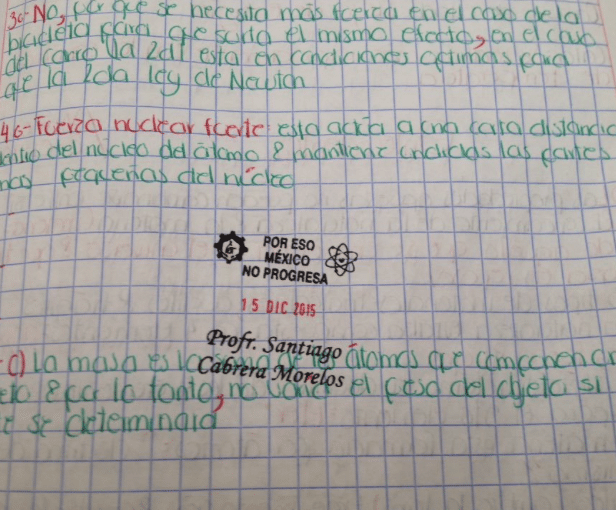 3c- No, por que se necesita más fuerza en el caso de la
bicicleta para que surja el mismo efecto, en el caso
del carro la 2da esta en condiciones optimas para
que la 2da ley de Newton
4c- Fuerza nuclear fuerte: esta actúa a una corta distancia
dentro del núcleo del átomo & mantiene unidas las partes
mas pequeñas del núcleo
POR ESO
MÉXICO
NO PROGRESA
15 DIC 2015
Profr. Santiago
Cabrera Morelos
a) la masa es la átomos que componen a
& por lo tanto, no el peso del objeto si
se determinara